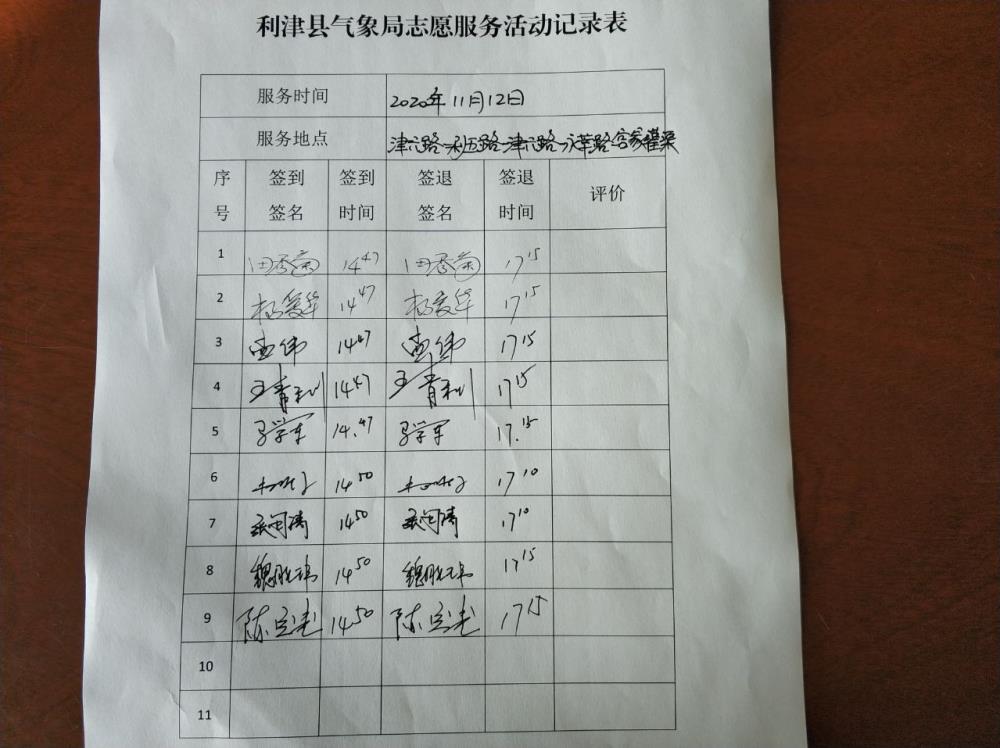 利津县气象局志愿服务活动记录表
服务时间 2020年11月12日
服务地点 津六路-利五路-津六路-永莘路
序号 签到签名 签到时间 签退签名 签退时间 评价
1 田秀菊 14 47 田秀菊 17 15
2 杨爱华 14 47 杨爱华 17 15
3 伟 14 47 伟 17 15
4 王青利 14 47 王青利 17 15
5 马学军 14.47 马学军 17.15
6 14 50 17 10
7 14 50 17 10
8 魏 14 50 魏 17 15
9 陈 14 50 陈 17 15
10
11